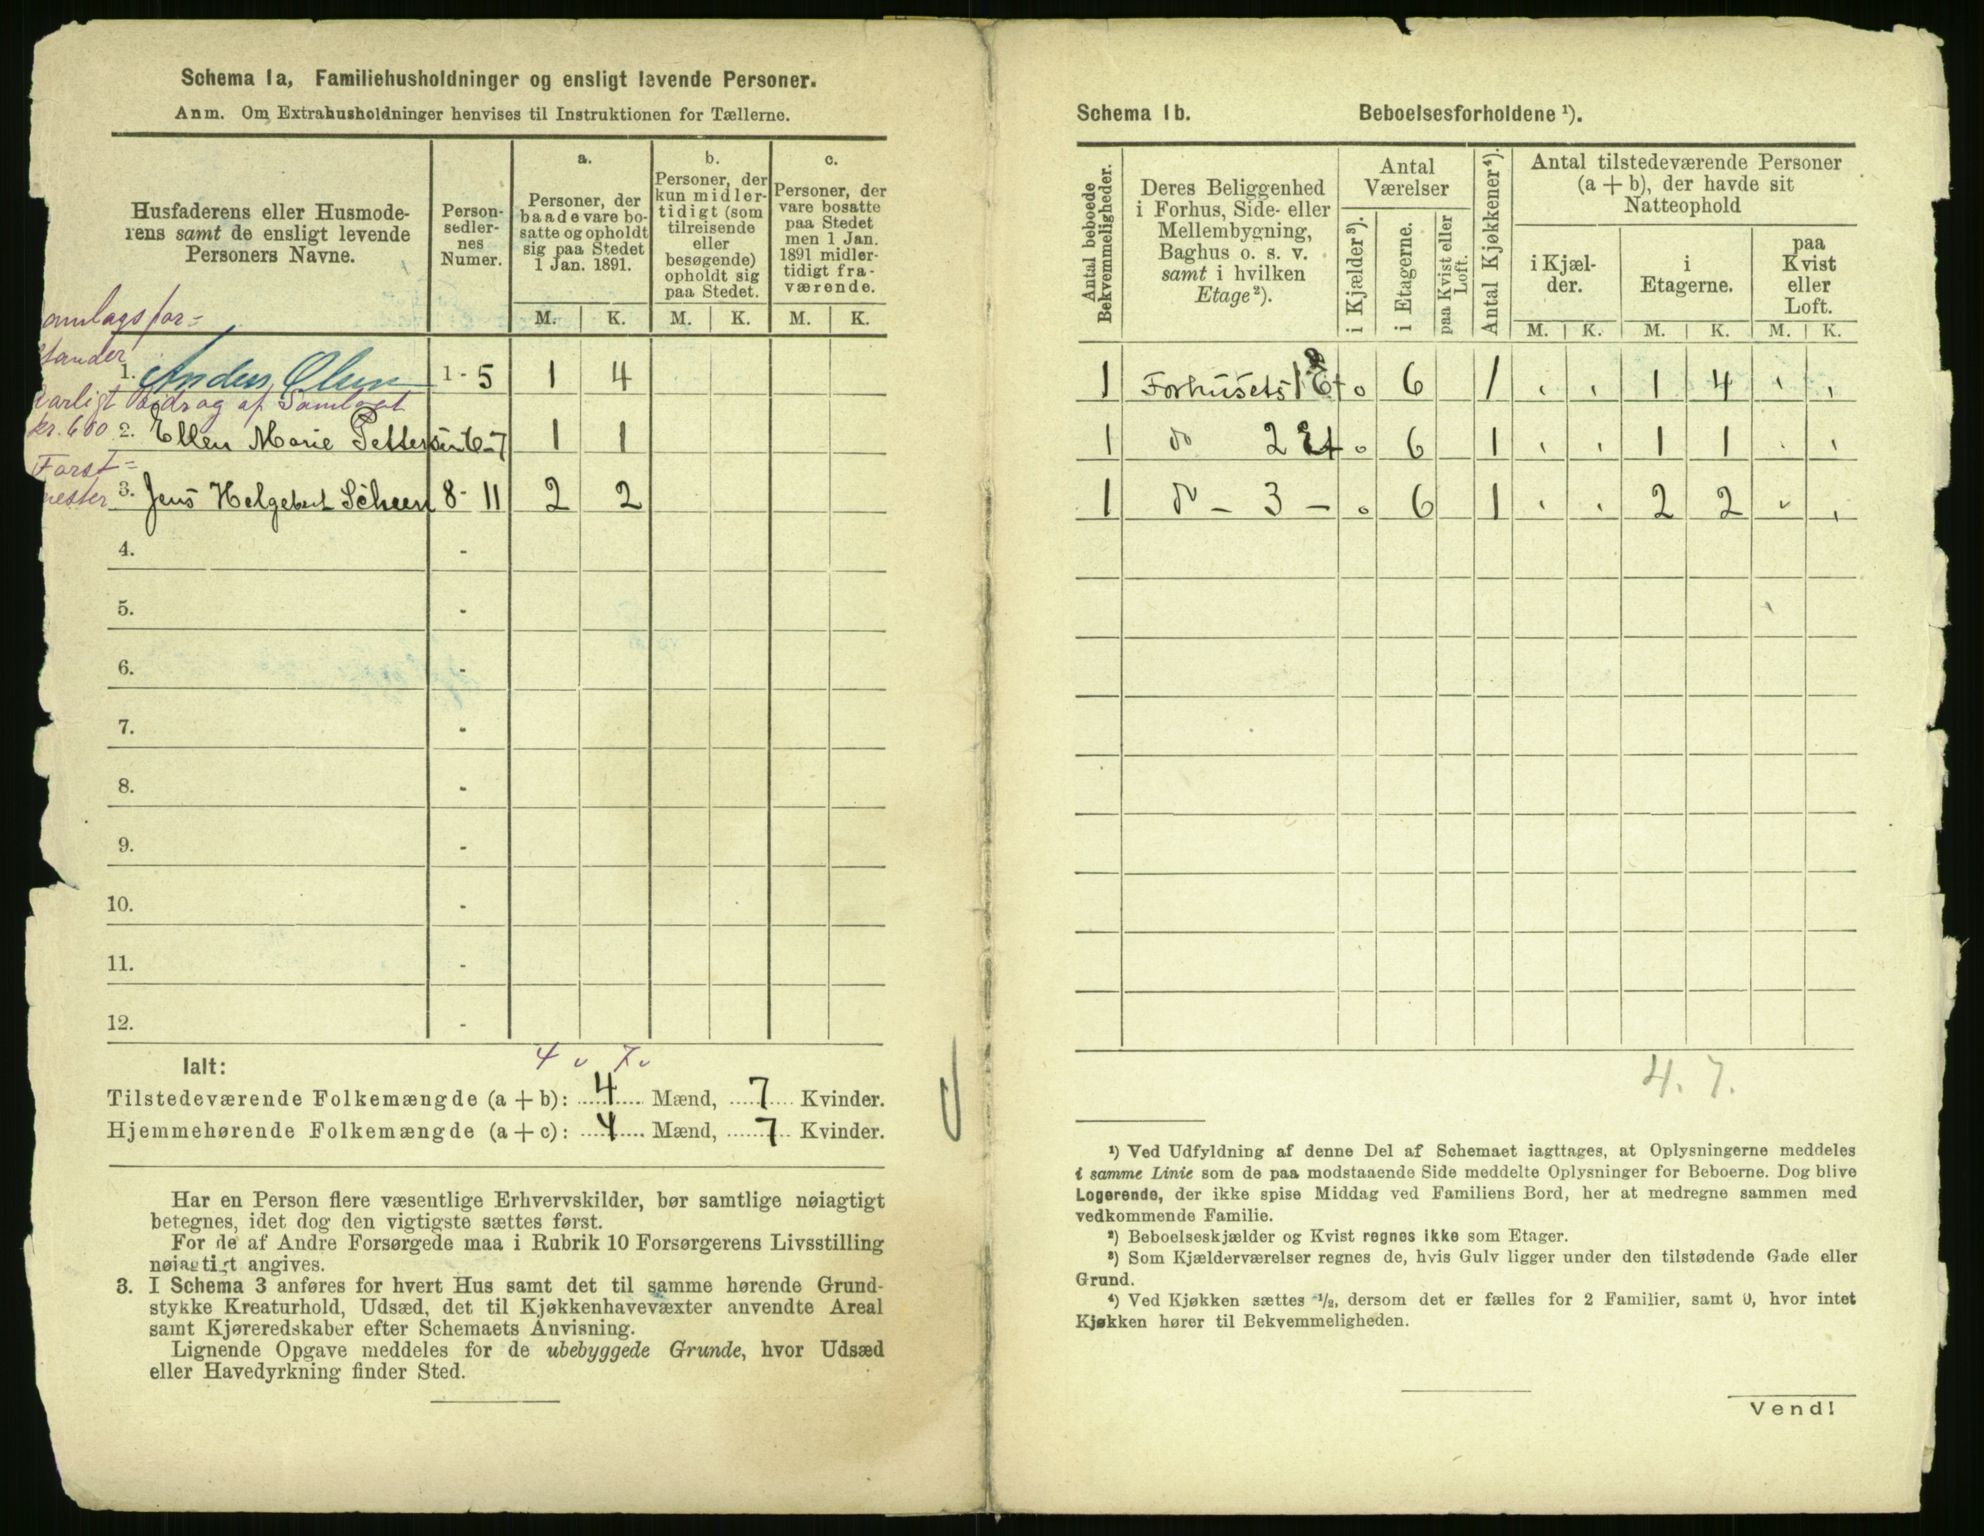 Schema 1a, Familiehusholdninger og ensligt levende Personer.
Anm. Om Extrahusholdninger henvises til Instruktionen for Tællerne.
Husfaderens eller Husmode-
rens samt de ensligt levende
Personers Navne.
Person-
sedler-
nes
Numer.
a.
Personer, der
baade vare bo-
satte og opholdt
sig paa Stedet
1 Jan. 1891.
b.
Personer, der
kun midler-
tidigt (som
tilreisende
eller
besøgende)
opholdt sig
paa Stedet.
c.
Personer, der
vare bosatte
paa Stedet
men 1 Jan.
1891 midler-
tidigt fra-
værende.
M. K. M. K. M. K.
amlagsfor=
stander
1. Anders Olsen 1 - 5 1 4
arligt Bidrag af Samlaget
kr. 600 2. Ellen Marie Pettersen 6-7 1 1
Forst=
mester 3. Jens Helgebert Scheen 8 - 11 2 2
4. -
5. -
6. -
7. -
8. -
9. -
10. -
11. -
12. -
4 7
Ialt:
Tilstedeværende Folkemængde (a + b): 4 Mænd, 7 Kvinder.
Hjemmehørende Folkemængde (a + c): 4 Mænd, 7 Kvinder.
Har en Person flere væsentlige Erhvervskilder, bør samtlige nøiagtigt
betegnes, idet dog den vigtigste sættes først.
For de af Andre Forsørgede maa i Rubrik 10 Forsørgerens Livsstilling
nøiagtigt angives.
3. I Schema 3 anføres for hvert Hus samt det til samme hørende Grund-
stykke Kreaturhold, Udsæd, det til Kjøkkenhavevæxter anvendte Areal
samt Kjøreredskaber efter Schemaets Anvisning.
Lignende Opgave meddeles for de ubebyggede Grunde, hvor Udsæd
eller Havedyrkning finder Sted.
Schema 1b. Beboelsesforholdene ¹).
Antal beboede
Bekvemmeligheder.
Deres Beliggenhed
i Forhus, Side- eller
Mellembygning,
Baghus o. s. v.
samt i hvilken
Etage ²).
Antal
Værelser
i Kjælder ³).
i Etagerne.
paa Kvist eller
Loft.
Antal Kjøkkener ⁴).
Antal tilstedeværende Personer
(a + b), der havde sit
Natteophold
i Kjæl-
der.
i
Etagerne.
paa
Kvist
eller
Loft.
M. K. M. K. M. K.
1 Forhusets 1 Et 0 6 1 , , 1 4 , ,
1 do 2 Et 0 6 1 , , 1 1 , ,
1 do - 3 - 0 6 1 , , 2 2 , ,
4. 7.
¹) Ved Udfyldning af denne Del af Schemaet iagttages, at Oplysningerne meddeles
i samme Linie som de paa modstaaende Side meddelte Oplysninger for Beboerne. Dog blive
Logerende, der ikke spise Middag ved Familiens Bord, her at medregne sammen med
vedkommende Familie.
²) Beboelseskjælder og Kvist regnes ikke som Etager.
³) Som Kjælderværelser regnes de, hvis Gulv ligger under den tilstødende Gade eller
Grund.
⁴) Ved Kjøkken sættes ¹/₂, dersom det er fælles for 2 Familier, samt 0, hvor intet
Kjøkken hører til Bekvemmeligheden.
Vend!